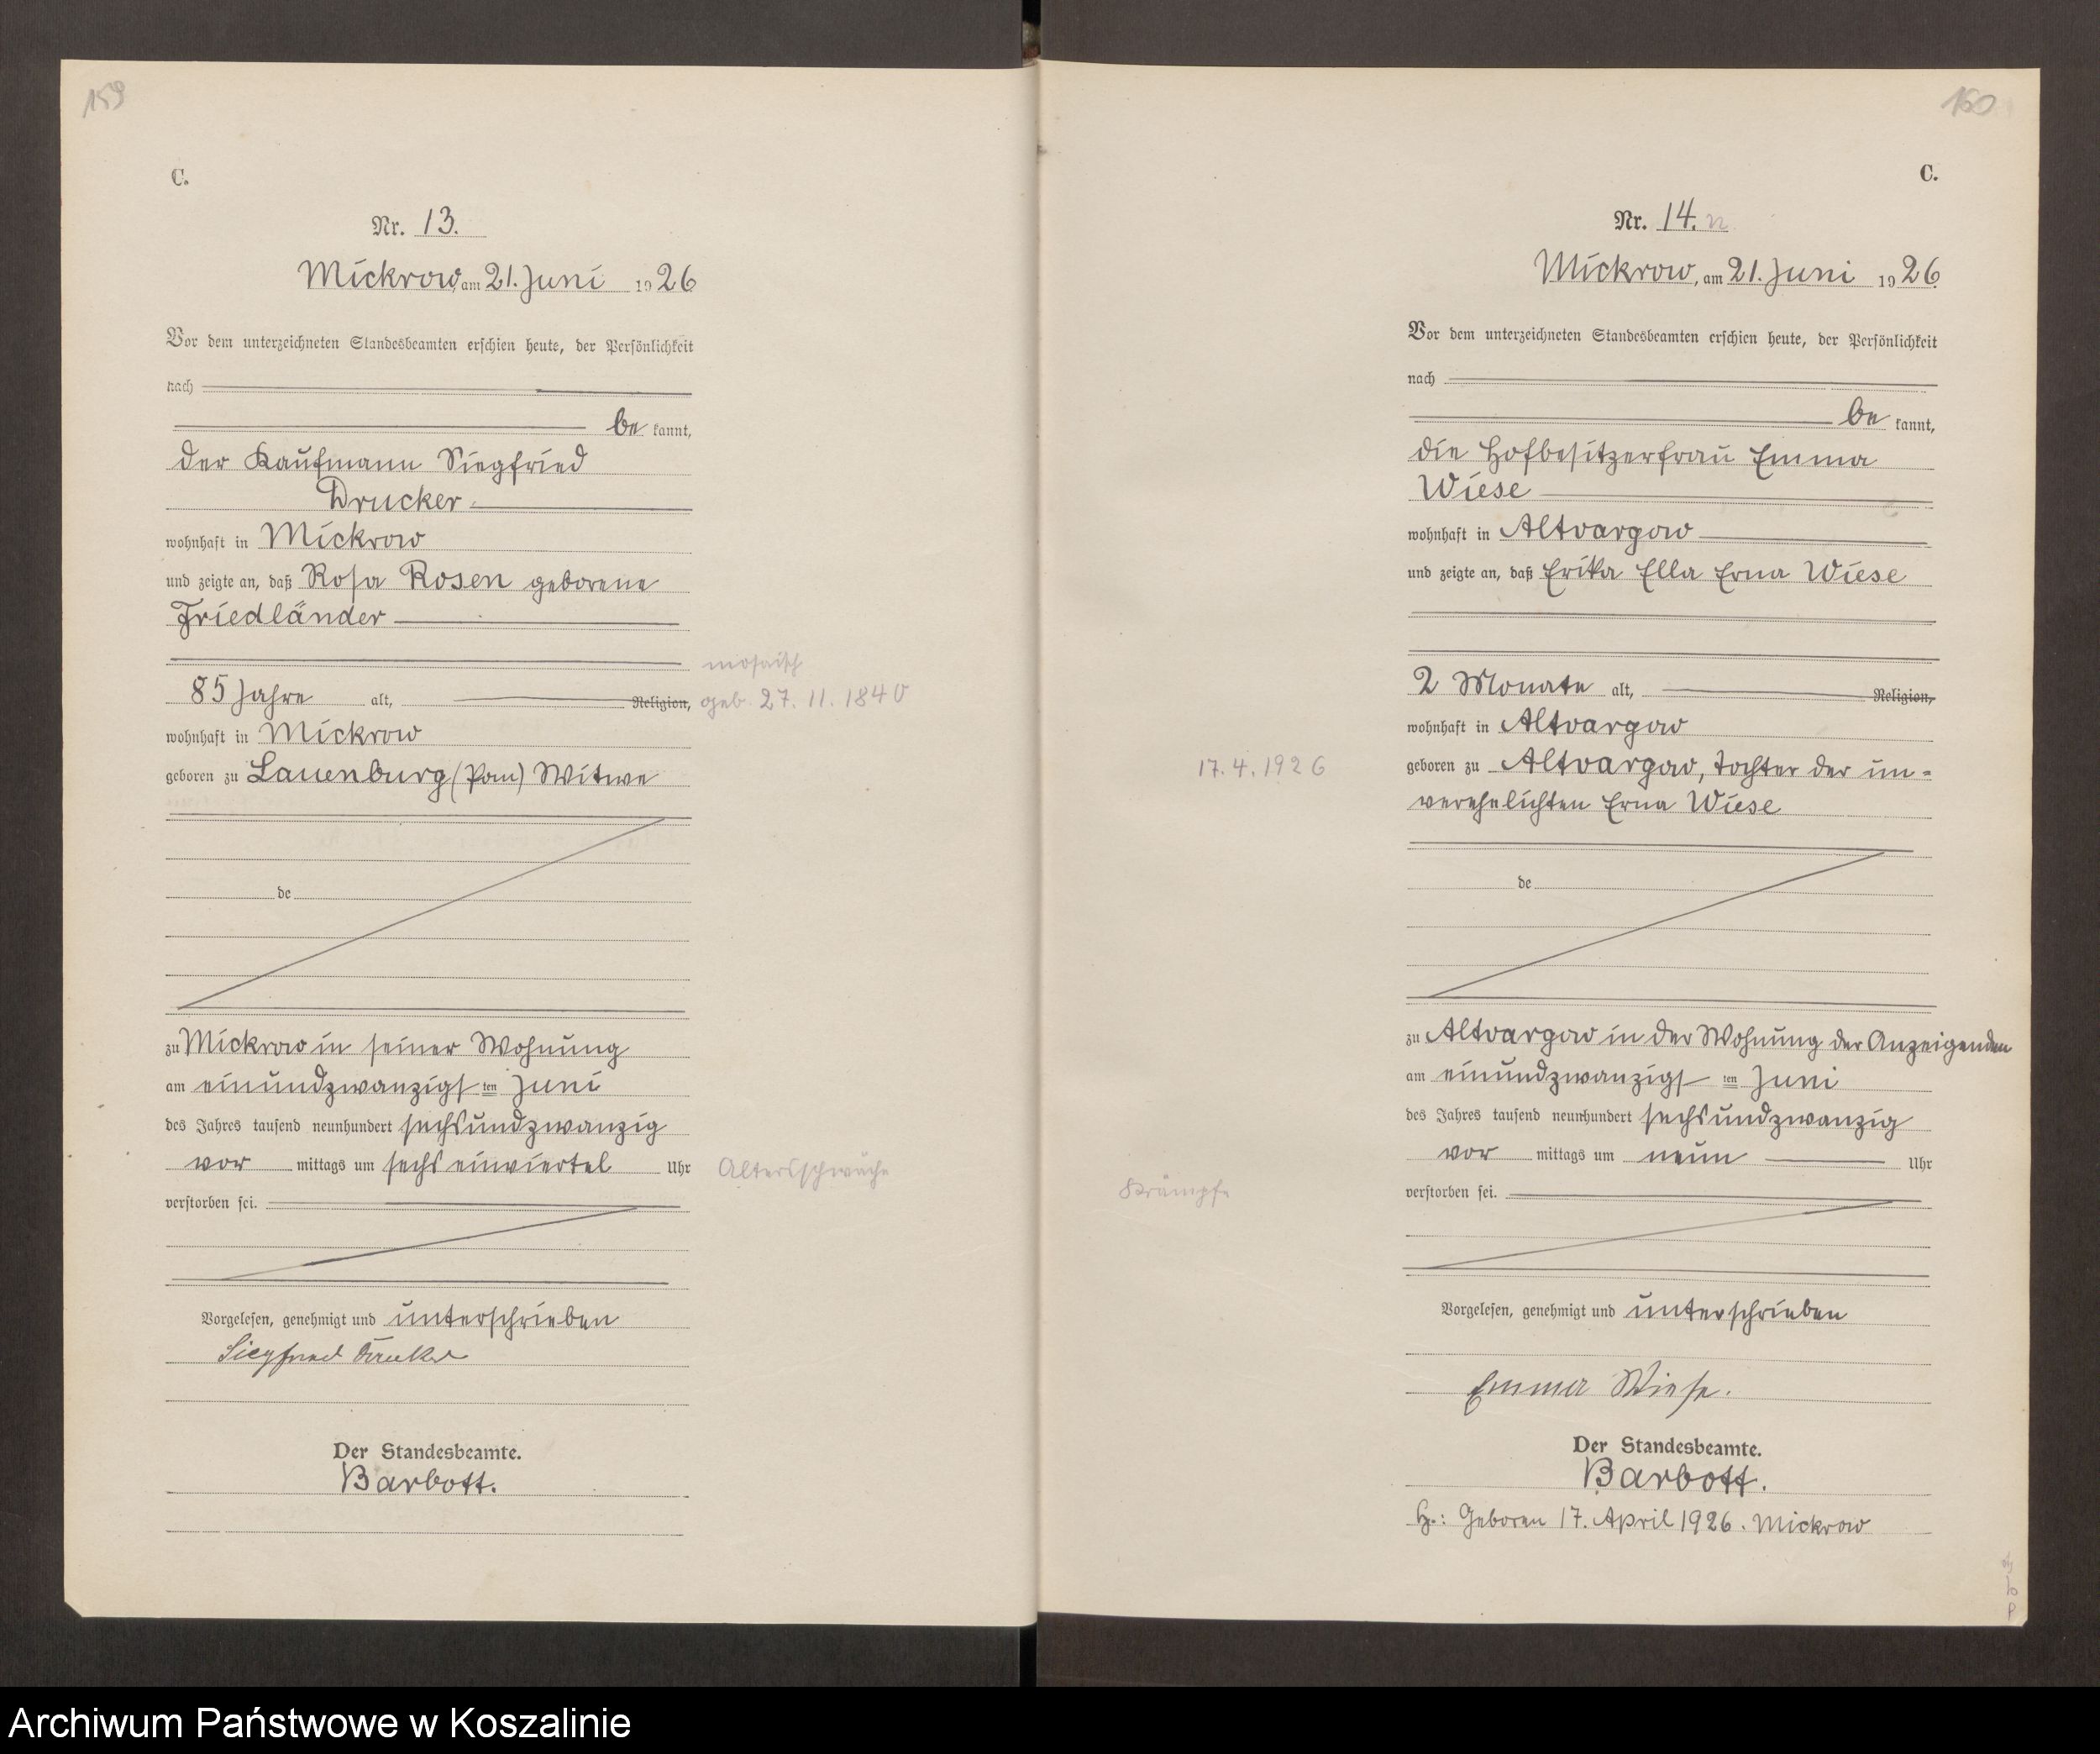 159
C.
Nr. 13.
Mickrow, am 21. Juni 1926
Vor dem unterzeichneten Standesbeamten erschien heute, der Persönlichkeit
nach
be kannt,
der Kaufmann Siegfried
Drucker
wohnhaft in Mickrow
und zeigte an, daß Rosa Rosen geborene
Friedländer
mosaisch
85 Jahre alt, Religion, geb. 27. 11. 1840
wohnhaft in Mickrow
geboren zu Lauenburg (Pom) Witwe
de
zu Mickrow in seiner Wohnung
am einundzwanzigsten Juni
des Jahres tausend neunhundert sechsundzwanzig
vor mittags um sechs einviertel Uhr Altersschwäche
verstorben sei.
Vorgelesen, genehmigt und unterschrieben
Siegfried Drucker
Der Standesbeamte.
Barbott.
160
C.
Nr. 14.
Mickrow, am 21. Juni 1926
Vor dem unterzeichneten Standesbeamten erschien heute, der Persönlichkeit
nach
be kannt,
die Hofbesitzerfrau Emma
Wiese
wohnhaft in Altvargow
und zeigte an, daß Erika Ella Erna Wiese
2 Monate alt, Religion,
wohnhaft in Altvargow
17. 4. 1926 geboren zu Altvargow, Tochter der un=
verehelichten Erna Wiese
de
zu Altvargow in der Wohnung der Anzeigenden
am einundzwanzigsten Juni
des Jahres tausend neunhundert sechsundzwanzig
vor mittags um neun Uhr
Krämpfe verstorben sei.
Vorgelesen, genehmigt und unterschrieben
Emma Wiese.
Der Standesbeamte.
Barbott.
Geboren 17. April 1926. Mickrow
Archiwum Państwowe w Koszalinie